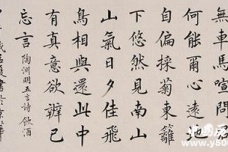 無車馬喧問君
何能爾心遠地
自偏採菊東籬
下悠然見南山
山氣日夕佳飛
鳥相與還此中
有真意欲辨已
忘言 陶淵明五言詩 飲酒